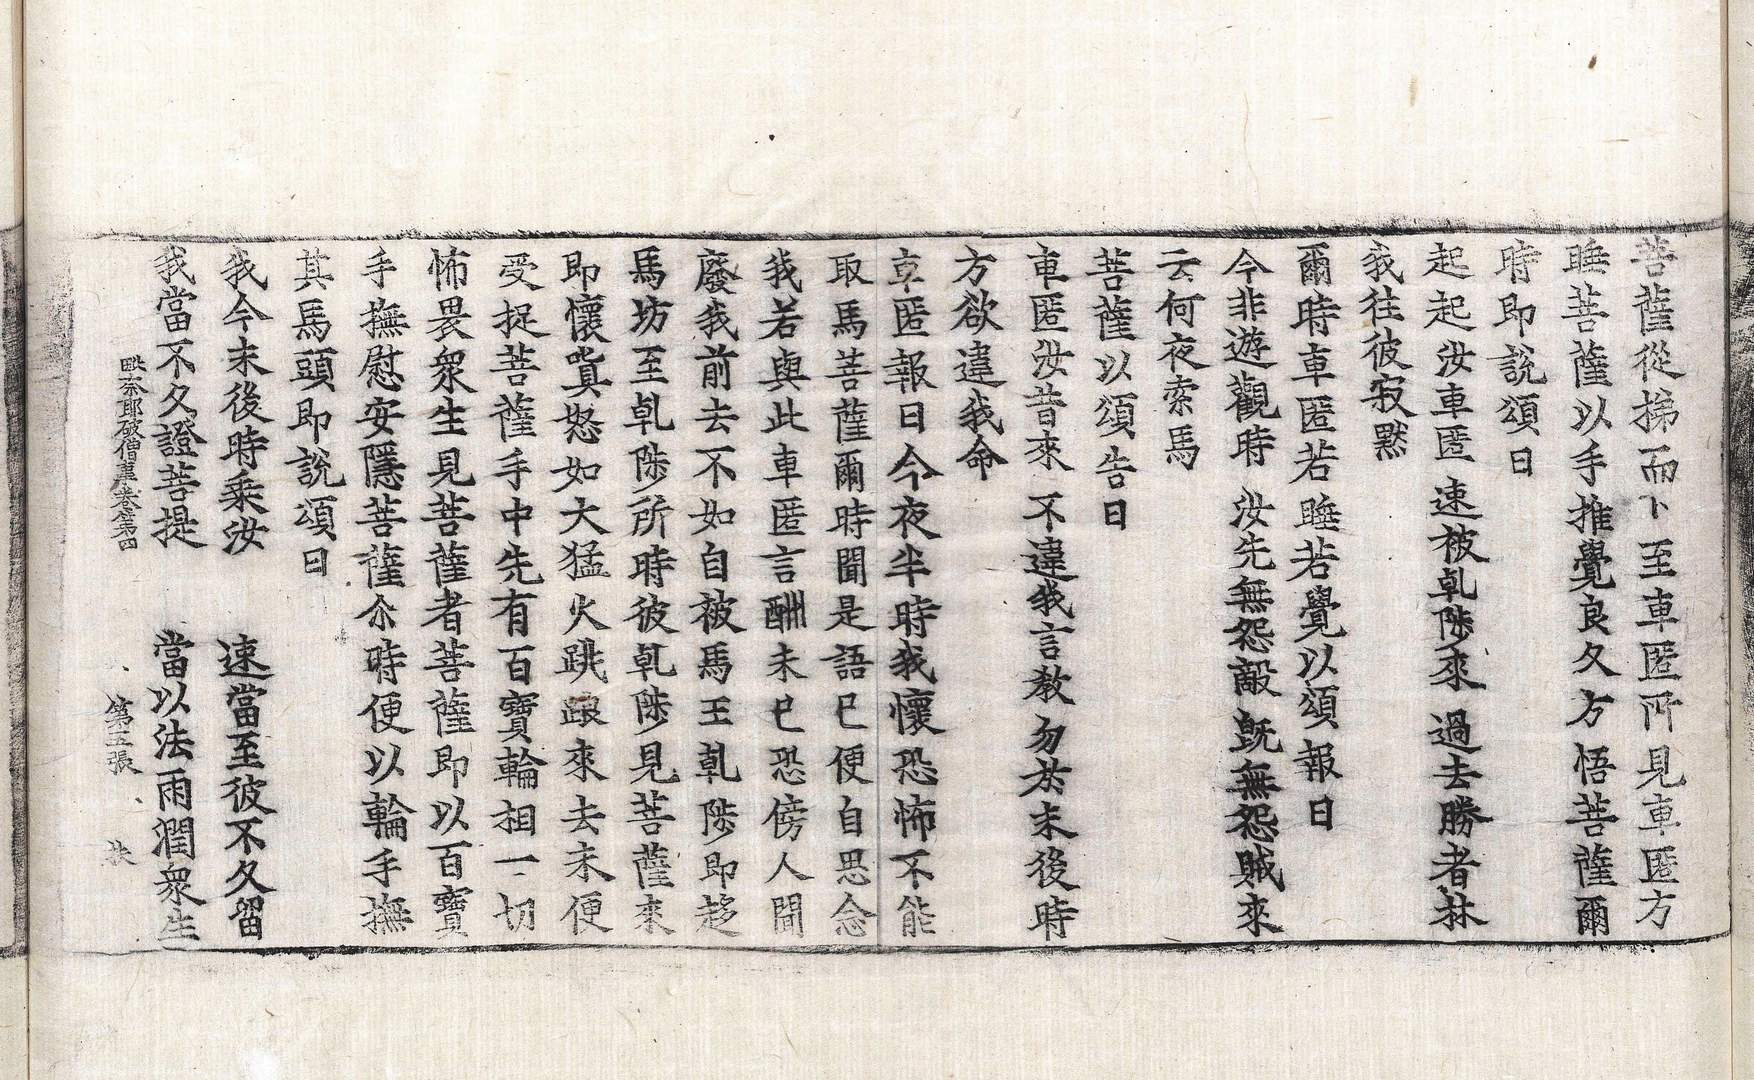 菩薩從梯而下至車匿所見車匿方
睡菩薩以手推覺良久方悟菩薩爾
時即說頌曰
起起汝車匿 速被乹陟來 過去勝者林
我往彼寂默
爾時車匿若睡若覺以頌報曰
今非遊觀時 汝先無怨敵 旣無怨賊來
云何夜索馬
菩薩以頌告曰
車匿汝昔來 不違我言教 勿於末後時
方欲違我命
車匿報曰今夜半時我懷恐怖不能
取馬菩薩爾時聞是語已便自思念
我若與此車匿言酬未已恐傍人聞
廢我前去不如自被馬王乹陟即趍
馬坊至乹陟所時彼乹陟見菩薩來
即懷嗔怒如大猛火跳踉來去未便
受捉菩薩手中先有百寶輪相一切
怖畏衆生見菩薩者菩薩即以百寶
手撫慰安隱菩薩尒時便以輪手撫
其馬頭即說頌曰
我今末後時乘汝 速當至彼不久留
我當不久證菩提 當以法雨潤衆生
毗奈耶破僧事卷第四 第五張